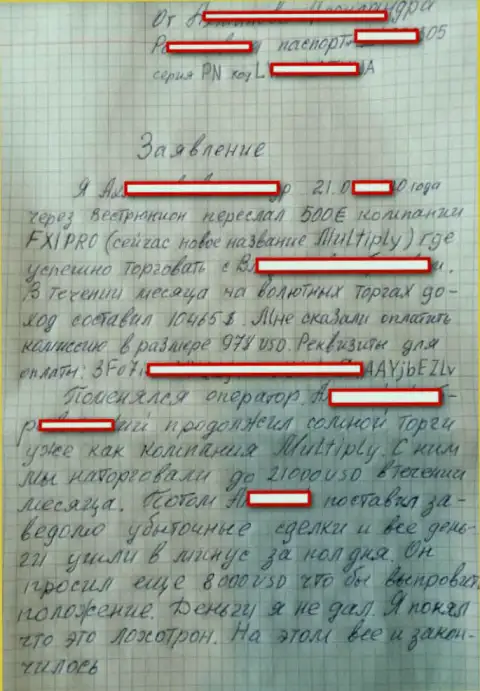 От А
Р паспорт 05
серия PN код L NA
Заявление
Я Ах р 21.0 0 года
через Вестрюнион переслал 500€ компании
FXIPRO (сейчас новое название Multiply) где
успешно торговать с Вл и.
В течении месяца на волютных торгах до-
ход составил 10465$. Мне сказали оплатить
комиссию в размере 978 USD. Реквизиты для
оплаты: 3Fo7 AAYjbEZLv
Поменялся оператор. А
р продолжил сомной торги
уже как компания Multiply. С ним
мы наторговали до 21000 USD в течении
месяца. Потом А поставил за-
ведомо убыточные сделки и все день-
ги ушли в минус за пол дня. Он
просил еще 8000 USD что бы выпровить
положение. Деньги я не дал. Я понял
что это лохотрон. На этом все и закон-
чилось